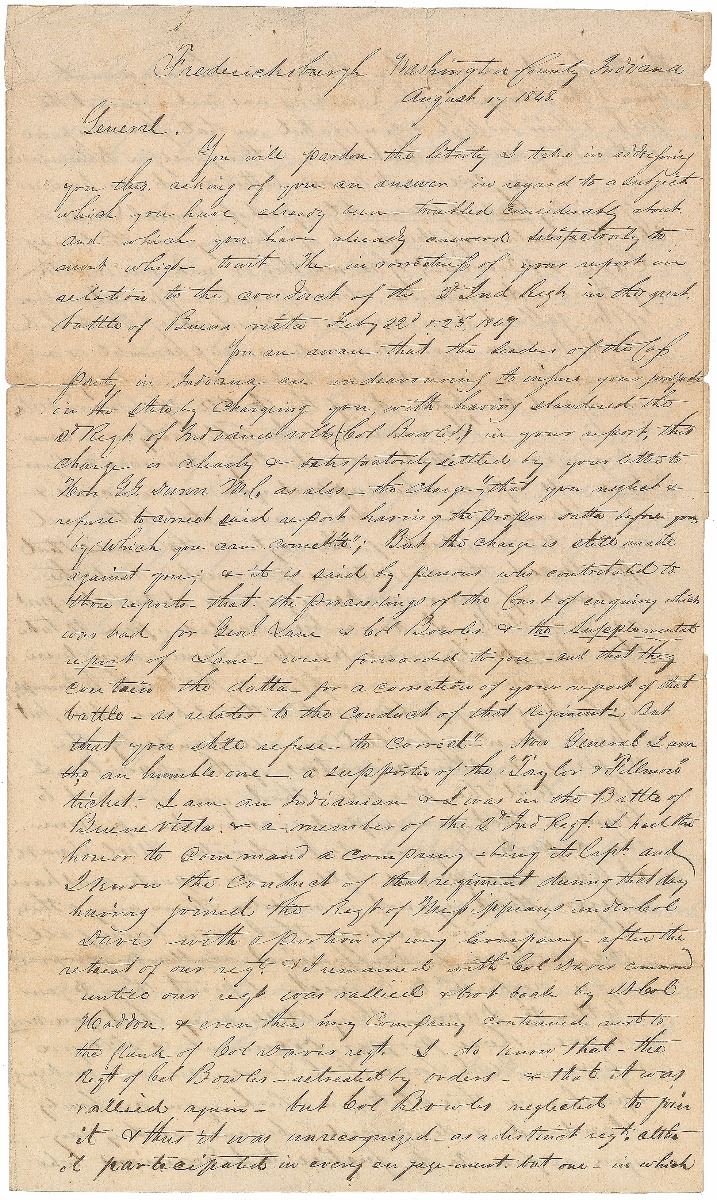 Fredericksburgh Washington County Indiana
August 17 1848.
General.
You will pardon the liberty I take in addressing
you this. asking of you an answer in regard to a subject
which you have already been troubled considerably about
and which you have already answered satisfactorily to
most whigs trust the incorrectness of your report in
relation to the conduct of the 2d Ind Regt in the great
battle of Buena vista Feby 22d & 23d 1847
You are aware that the leaders of the Cass
Party in Indiana are endeavouring to injure your prospects
in the state by charging you, with having slandered the
2d Regt of Indiana volts (Col Bowles) in your report, this
charge is already & satisfactorily settled by your letter to
Hon G.G. Dunn M.C, as also - the charge "that you neglect &
refuse to correct said report having the proper datta before you
by which you can correct it"; But the charge is still made
against you; & it is said by persons who contributed to
those reports - that the proceedings of the Court of enquiry which
was had for Genl Lane & Col Bowles & the supplemental
report of Lane - were forwarded to you - and that they
contain the datta - for a correction of your report of that
battle - as relates to the conduct of that Regiment - But
that you still refuse - to correct" - Now General I am
tho an humble one - a supporter of the Taylor & Fillmore
ticket - I am an Indianian & I was in the Battle of
Buena Vista. & a member of the 2d Ind Regt. I had the
honor to command a company - being its Capt and
I know the conduct of that regiment during that day
having joined the Regt of Mississippians under Col
Davis with a portion of my Company after the
retreat of our regt. & I remained with Col Davis command
untill our regt was rallied & brot back by Lt Col
Haddon. & even then my Company continued next to
the flank of Col Davis regt. I do know that - the
Regt of Col Bowles - retreated by orders - & that it was
rallied again - but Col Bowles neglected to join
it & thus it was unrecognized - as a distinct regt. altho
it participated in every engagement but one - in which